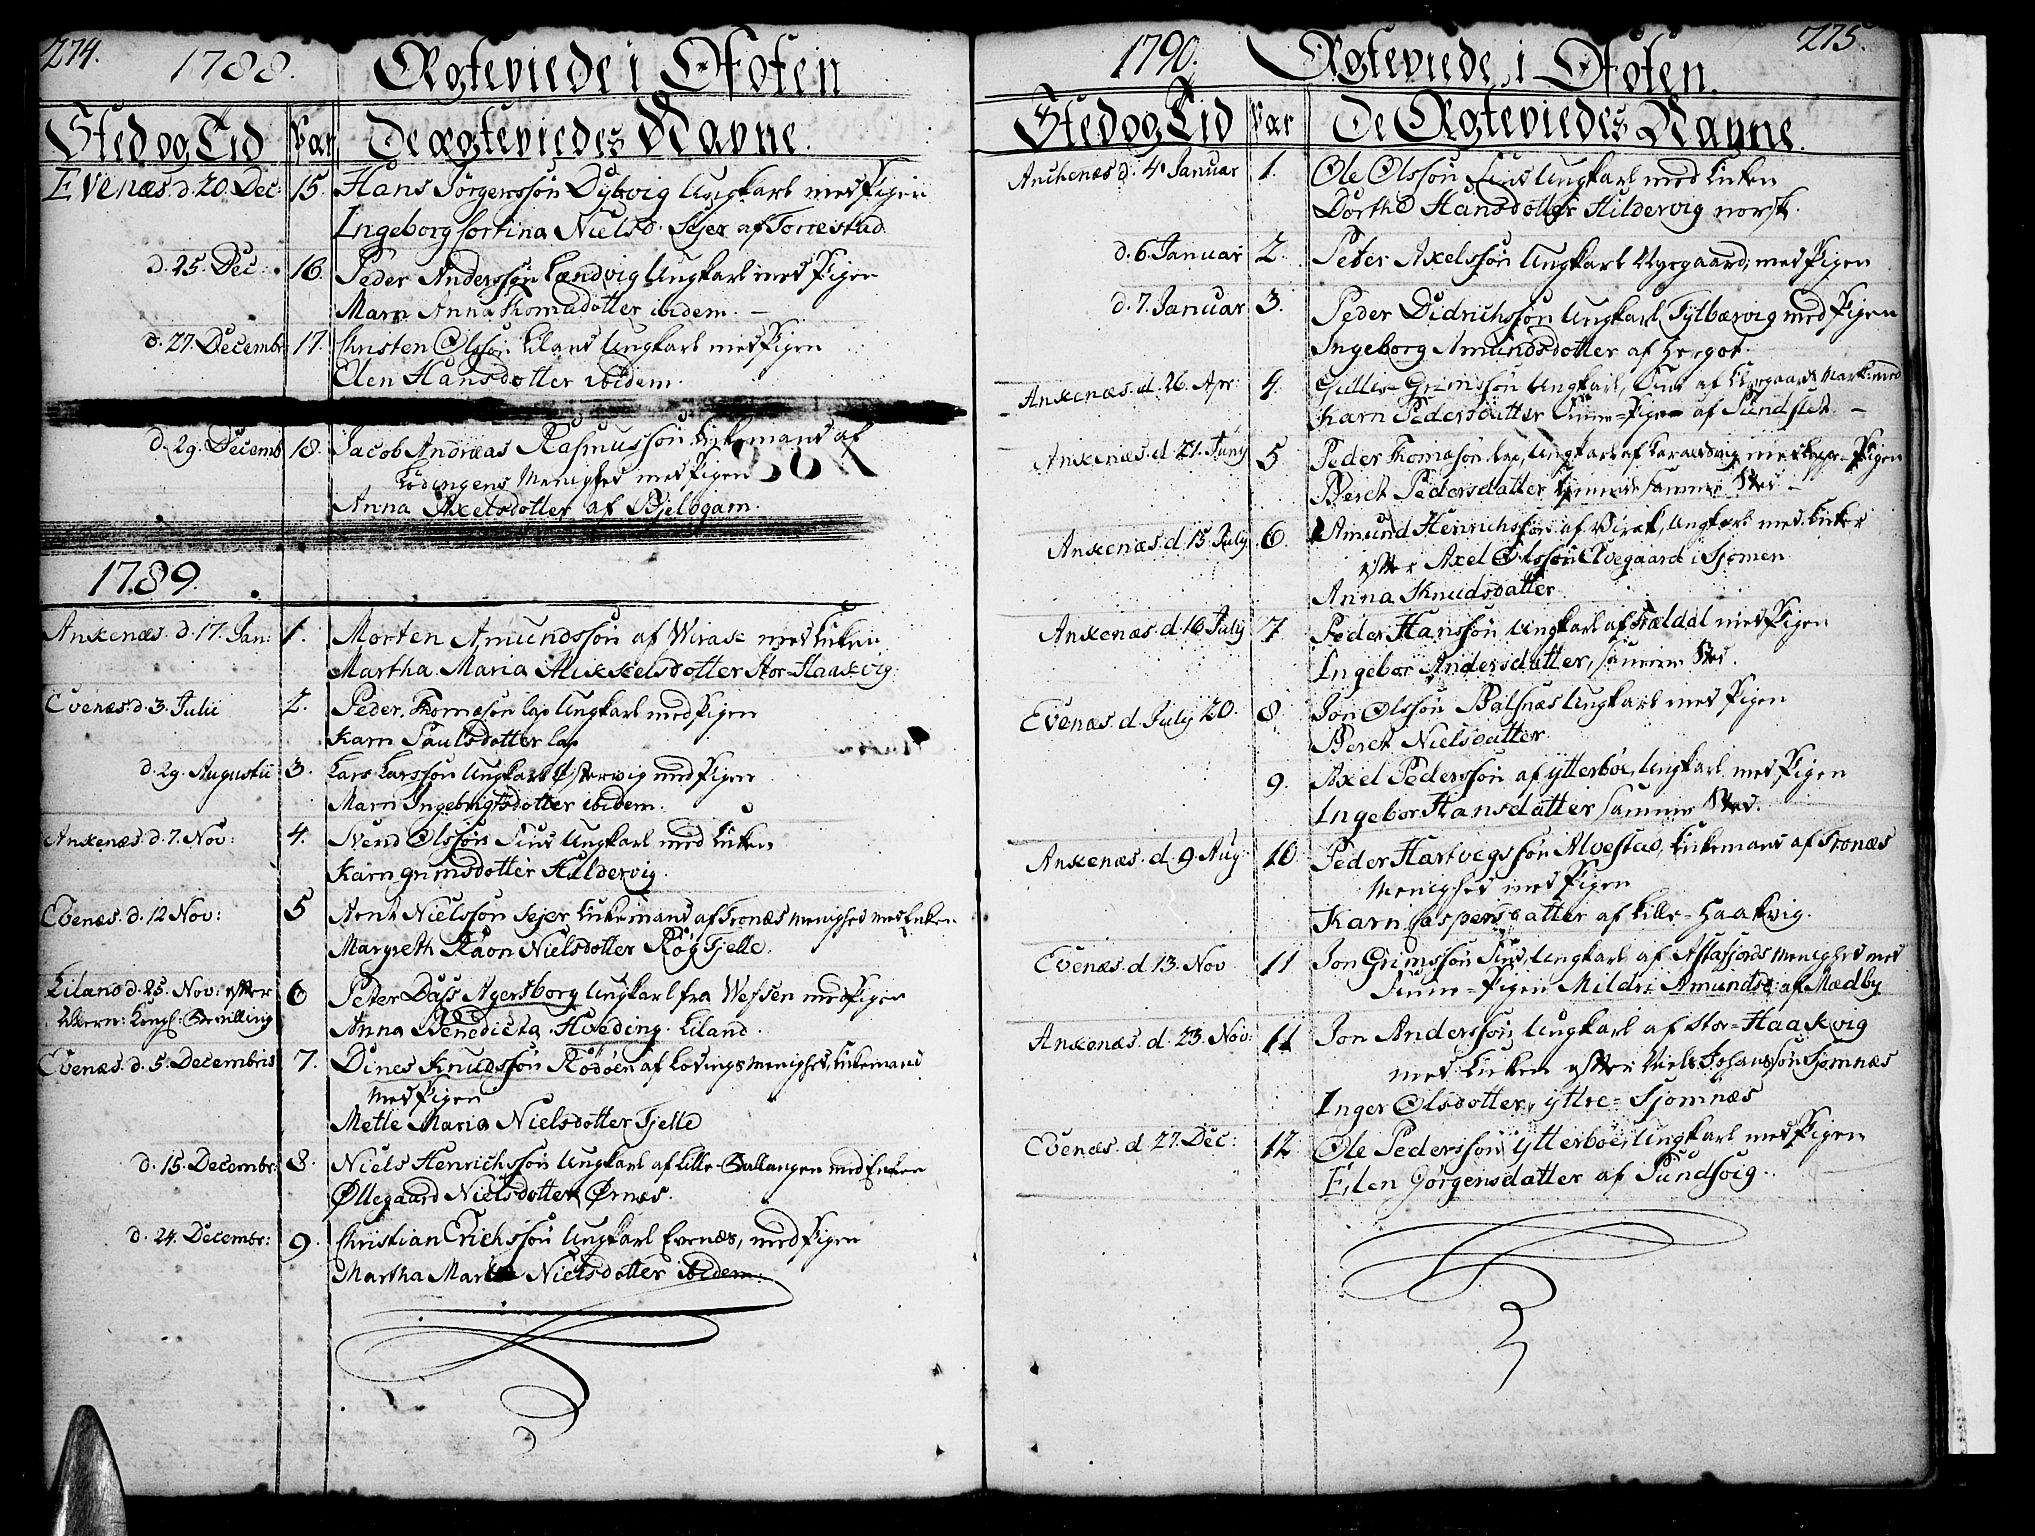 274.
1788.
Ægteviede i Ofoten
Sted og Tid Par De ægteviedes Navne.
Evenæs d. 20. Dec: 15. Hans Jørgenssøn Dybvig Ungkarl med Pigen
Ingeborg Cortina Nielsd. Sejer af Forrestad
d. 25. Dec: 16. Peder Anderssøn Lændvig Ungkarl med Pigen
Marn Anna Thomadotter ibidem. –
d. 27. Decembr 17. Christen Olssøn Liland Ungkarl med Pigen
Elen Hansdotter ibidem.
d. 29. Decemb 18. Jacob Andræas Rasmussøn Enkemand af
Lødingens Menighed med Pigen
Anna Axelsdotter af Bjelbgam.
1789.
Ankenæs. d. 17. Jan: 1. Morten Amundssøn af Wirak med Enken
Martha Maria Mikkelsdotter Stor-Haakvig.
Evenæs. d. 3. Julii 2. Peder Thomæsøn lap Ungkarl med Pigen
Karn Paulsdotter lap
d. 29. Augustii 3. Lars Larssøn Ungkarl Østervig med Pigen
Marn Ingebrigtsdotter ibidem.
Ankenæs d. 7. Nov: 4. Svend Olssøn Find Ungkarl med Enken
Karn Grimsdotter Hildervig.
Evenæs. d. 12 Nov: 5 Arnt Nielssøn Sejer Enkemand af Tronæs Menighed med Enken
Margreth Raon Nielsdotter Røg Fjelle.
Liland d. 25. Nov: efter 6 Peter Dass Agersborg Ungkarl fra Wefsen med Pigen
Kongl: Bevilling Anna Benedicta Hveding Liland.
Evenæs. d. 5. Decembris 7. Dines Knudssøn Rødøen af Lødings Menighed, Enkemand
med Pigen
Mette Maria Nielsdotter Fjelle
d. 15. Decembr: 8. Niels Henrichssøn Ungkarl af Lille-Ballangen med Enken
Øllegaard Nielsdotter Ørnæs.
d. 24. Decembr: 9. Christian Erichssøn Ungkarl Evenæs, med Pigen
Martha Nielsdotter ibidem.
275.
1790. Ægteviede i Ofoten.
Sted og Tid Par De Ægteviedes Navne.
Anchenæs d. 4 Januar 1. Ole Olssøn Find Ungkarl med Enken
Dorthe Hansdotter Hildervig norsk.
d. 6. Januar 2. Peter Axelssøn Ungkarl Nygaard, med Pigen
d. 7. Januar 3. Peder Didrichssøn Ungkarl Fylbærvig med Pigen
Ingeborg Amundsdotter af Hergot.
Ankenæs. d. 26. Apr: 4. Gullis Grimssøn Ungkarl, Find af Nygaards Mark: med
Karn Pedersdatter Finne-Pige af Sundstet. –
Ankenæs d 21. Juny 5 Peder Thomæsøn Lap, Ungkarl af med Lappe-Pigen
Beret Pedersdatter samme Sted –
Ankenæs d 15 July 6. Amund Henrichssøn af Virak, Ungkarl med Enken
efter Axel Olssøn Eldegaard i Sjomen
Anna Knudsdatter.
Ankenæs d. 16 July 7 Peder Hanssøn Ungkarl af Trældal med Pigen
Ingebor Andersdatter, samme Sted.
Evenæs d July 20. 8 Jon Olssøn Balsnæs Ungkarl med Pigen
Beret Nielsdatter
9. Axel Pederssøn af ytterboe, Ungkarl med Pigen
Ingebor Hansdatter samme Sted.
Ankenæs. d. 9. Aug. 10 Peder Hartvigssøn Alvestad, Enkemand af Tronæs
Menighed med Pigen
Karn Jaspersdatter af Lille-Haakvig.
Evenæs. d. 13. Nov 11 Jon Grimssøn Find, Ungkarl af Astafjords Menighed med
Finne-Pigen Mildri Amundsd: af Mædby
Ankenæs. d. 23. Nov: 11 Jon Anderssøn, Ungkarl af Stor-Haakvig
med Enken efter Niels Johanssøn Sjomnæs
Inger Olsdotter, yttre-Sjomnæs
Evenæs. d 27. Dec: 12 Ole Pederssøn ytterboe, Ungkarl med Pigen
Elen Jørgensdatter af Sundsvig.